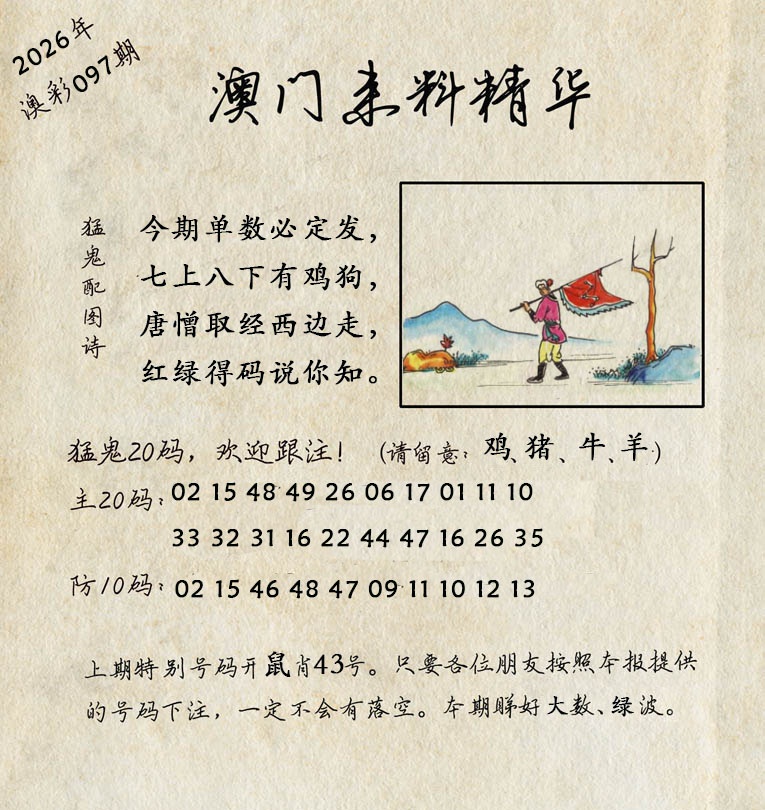 2026年
澳彩097期
澳门来料精华
猛鬼配图诗
今期单数必定发，
七上八下有鸡狗，
唐憎取经西边走，
红绿得码说你知。
猛鬼20码，欢迎跟注！（请留意：鸡、猪、牛、羊）
主20码：02 15 48 49 26 06 17 01 11 10
33 32 31 16 22 44 47 16 26 35
防10码：02 15 46 48 47 09 11 10 12 13
上期特别号码开鼠肖43号。只要各位朋友按照本报提供
的号码下注，一定不会有落空。本期睇好大数、绿波。